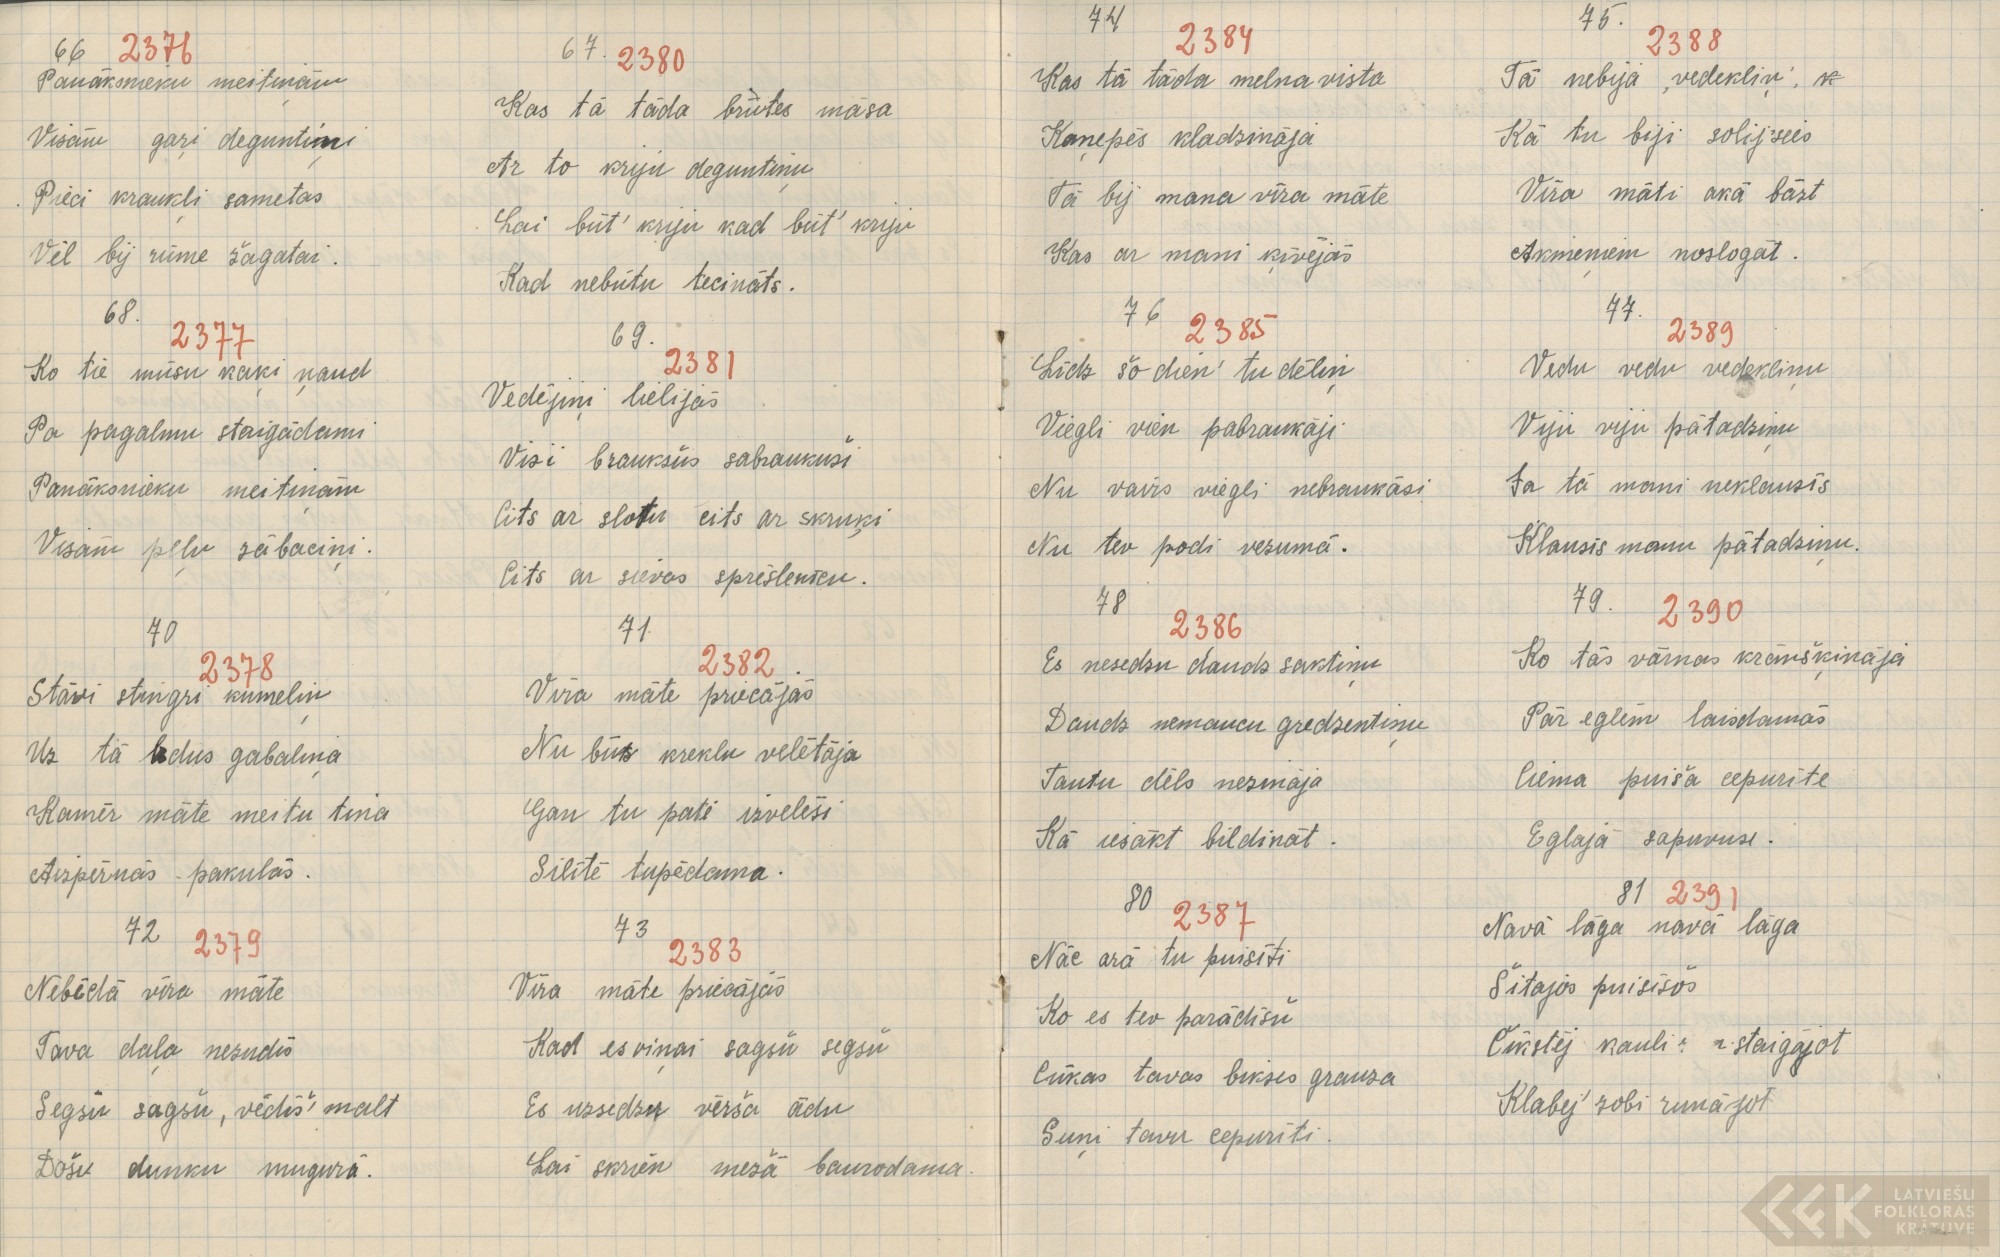 66 2376
Panāksnieku meitiņām
Visām gaŗi deguntiņi
Pieci kraukļi sametas
Vēl bij rūme žagatai.
68.
2377
Ko tie mūsu kaķi ņaud
Pa pagalmu staigādami
Panāksnieku meitiņām
Visām peļu zābaciņi.
70
2378
Stāvi stingri kumeliņ
Uz tā ledus gabaliņa
Kamēr māte meitu tina
Aizpērnās pakulās.
72 2379
Nebēdā vīra māte
Tava daļa nezudīs
Segšu sagšu, vēdīš' malt
Došu dunku mugurā.
67. 2380
Kas tā tāda brūtes māsa
Ar to kriju deguntiņu
Lai būt' kriju kad būt' kriju
Kad nebūtu tecināts.
69.
2381
Vedējiņi lielijās
Visi braukšus sabraukuši
Cits ar slotu cits ar skruķi
Cits ar sievas sprēslenīcu.
71.
2382.
Vīra māte priecājās
Nu būs kreklu velētāja
Gan tu pati izvelēsi
Silītē tupēdama.
73
2383
Vīra māte priecājās
Kad es viņai sagšu segšu
Es uzsedzu vērša ādu
Lai skrien mežā baurodama.
74
2384
Kas tā tāda melna vista
Kaņepēs kladzināja
Tā bij mana vīra māte
Kas ar mani ķīvējās
76
2385
Līdz šo dien' tu dēliņ
Viegli vien pabraukāji
Nu vairs viegli nebraukāsi
Nu tev podi vezumā.
78
2386
Es nesedzu daudz saktiņu
Daudz nemaucu gredzentiņu
Tautu dēls nezināja
Kā iesākt bildināt.
80
2387
Nāc ārā tu puisīti
Ko es tev parādīšu
Cūkas tavas bikses grauza
Suņi tavu cepurīti.
75.
2388
Tā nebija, vedekliņ',
Kā tu biji solij'sies
Vīra māti akā bāzt
Akmeņiem noslogāt.
77.
2389
Vedu vedu vedekliņu
Viju viju pātadziņu
Ja tā mani neklausīs
Klausīs manu pātadziņu.
79.
2390
Ko tās vārnas krāmšķināja
Pār eglēm laizdamās
Ciema puiša cepurīte
Eglajā sapuvuse.
81 2391
Navā lāga navā lāga
Šitajos puisīšos
Čikstēj kauli staigājot
Klabēj' zobi runājot
LATVIEŠU
FOLKLORAS
KRĀTUVE